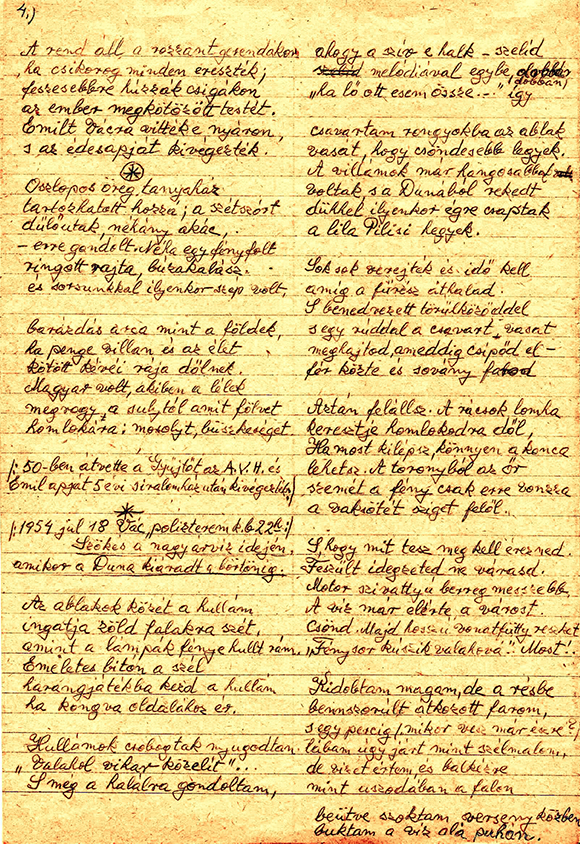 4.)
A rend áll, a rozzant gerendákon
„ha csikorog minden ereszték;
feszesebbre húzzák csigákon
az ember megkötözött testét.
Emilt Vácra vitték e nyáron,
s az édesapját kivégezték.
Oszlopos öreg tanyaház
tartozhatott hozzá; a szétszórt
dülőutak, néhány akác,
– erre gondolt. Néha egy fényfolt
ringott rajta, búzakalász.
és sorsunkkal ilyenkor szép volt,
barázdás arca mint a földek,
ha penge villan és az élet
kötött kévéi rája dőlnek.
Magyar volt, akiben a lélek
megrogy a sulytól amit fölvet
homlokára; mosolyt, büszkeséget.
/: 50-ben átvette a Gyüjtőt az Á.V.H. és
Emil apját 5 évi siralomház után kivégezték :/
/: 1954 jul 18 Vác, poliszterem k.b 22h :/
Szökés a nagyarvíz idején,
amikor a Duna kiáradt a börtönig.
Az ablakok közét a hullám
ingatja zöld falakra szét,
amint a lámpák fénye hullt rám.
Emeletes biton a szél
harangjátékba kezd a hullám
ha kongva oldalához ér.
Hullámok csobogtak nyugodtan
„Valahol vihar közelit”...
S még a halálra gondoltam,
ahogy a szív e halk – szelid
melódiával egybe dobban,
„ha lő ott esem össze...” így
csavartam rongyokba az ablak
vasát, hogy csöndesebb legyek.
A villámok már hangosabbak
voltak, s a Dunából rekedt
dühhel ilyenkor égre csaptak
a lila Pilisi hegyek.
Sok sok verejték és idő kell
amíg a fűrész áthalad.
S benedvezett törülköződdel
s egy rúddal a csavart vasat
meghajtod, ameddig csípőd el-
fér közte és sovány farod
Aztán felállsz. A rácsok lomha
keresztje homlokodra dől,
Ha most kilépsz, könnyen a konca
lehetsz. A toronyból az őr
szemét a fény csak erre vonzza
a vaksötét sziget felől.
S hogy mit tesz meg kell érezned.
Feszült idegzeted ne várasd.
Motor szivattyú berreg messzebb,
A víz már elérte a várost.
Csönd. Majd hosszú vonatfütty reszket
„Fénysor kúszik valahová.” Most!
Kidobtam magam, de a résbe
bennszorúlt átkozott farom,
s egy percig /mikor vesz már észre?/
lábam úgy járt mint szélmalom,
de vizet értem és balkézre
mint uszodában a falon
beütve szoktam verseny közben
buktam a víz alá puhán.